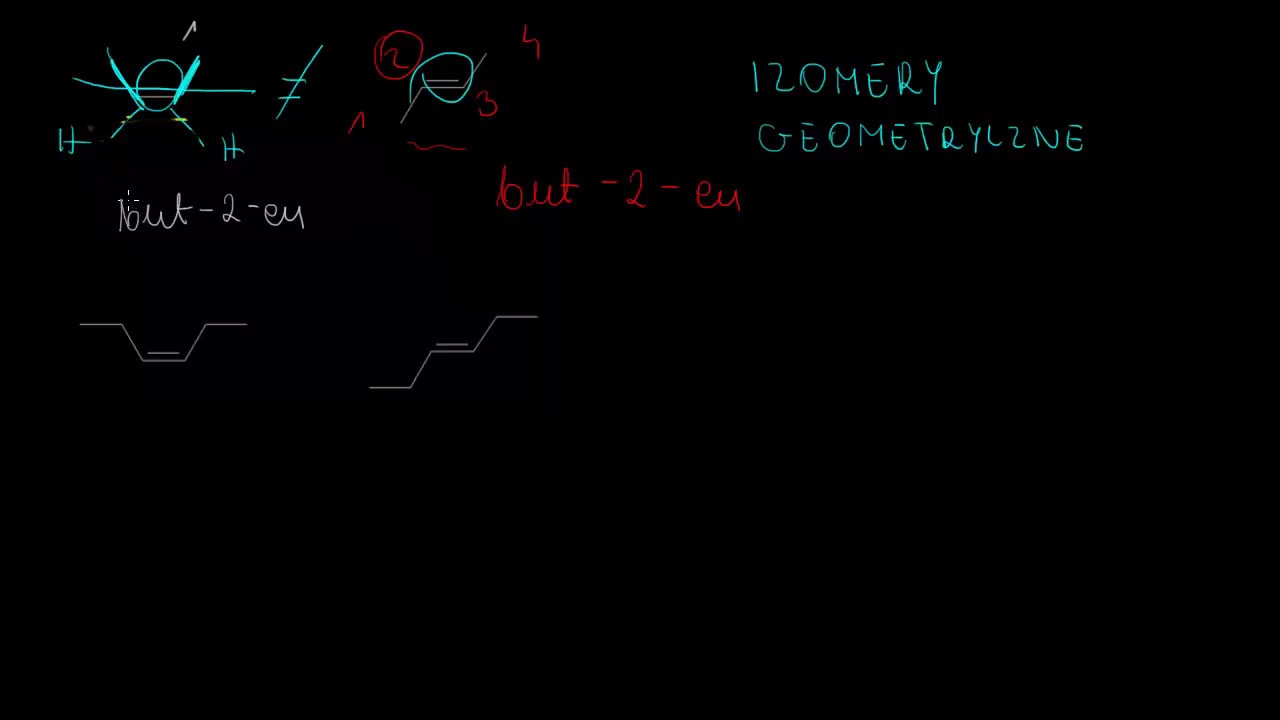 1
2
4
3
1
H
H
IZOMERY
GEOMETRYCZNE
but-2-en
but-2-en